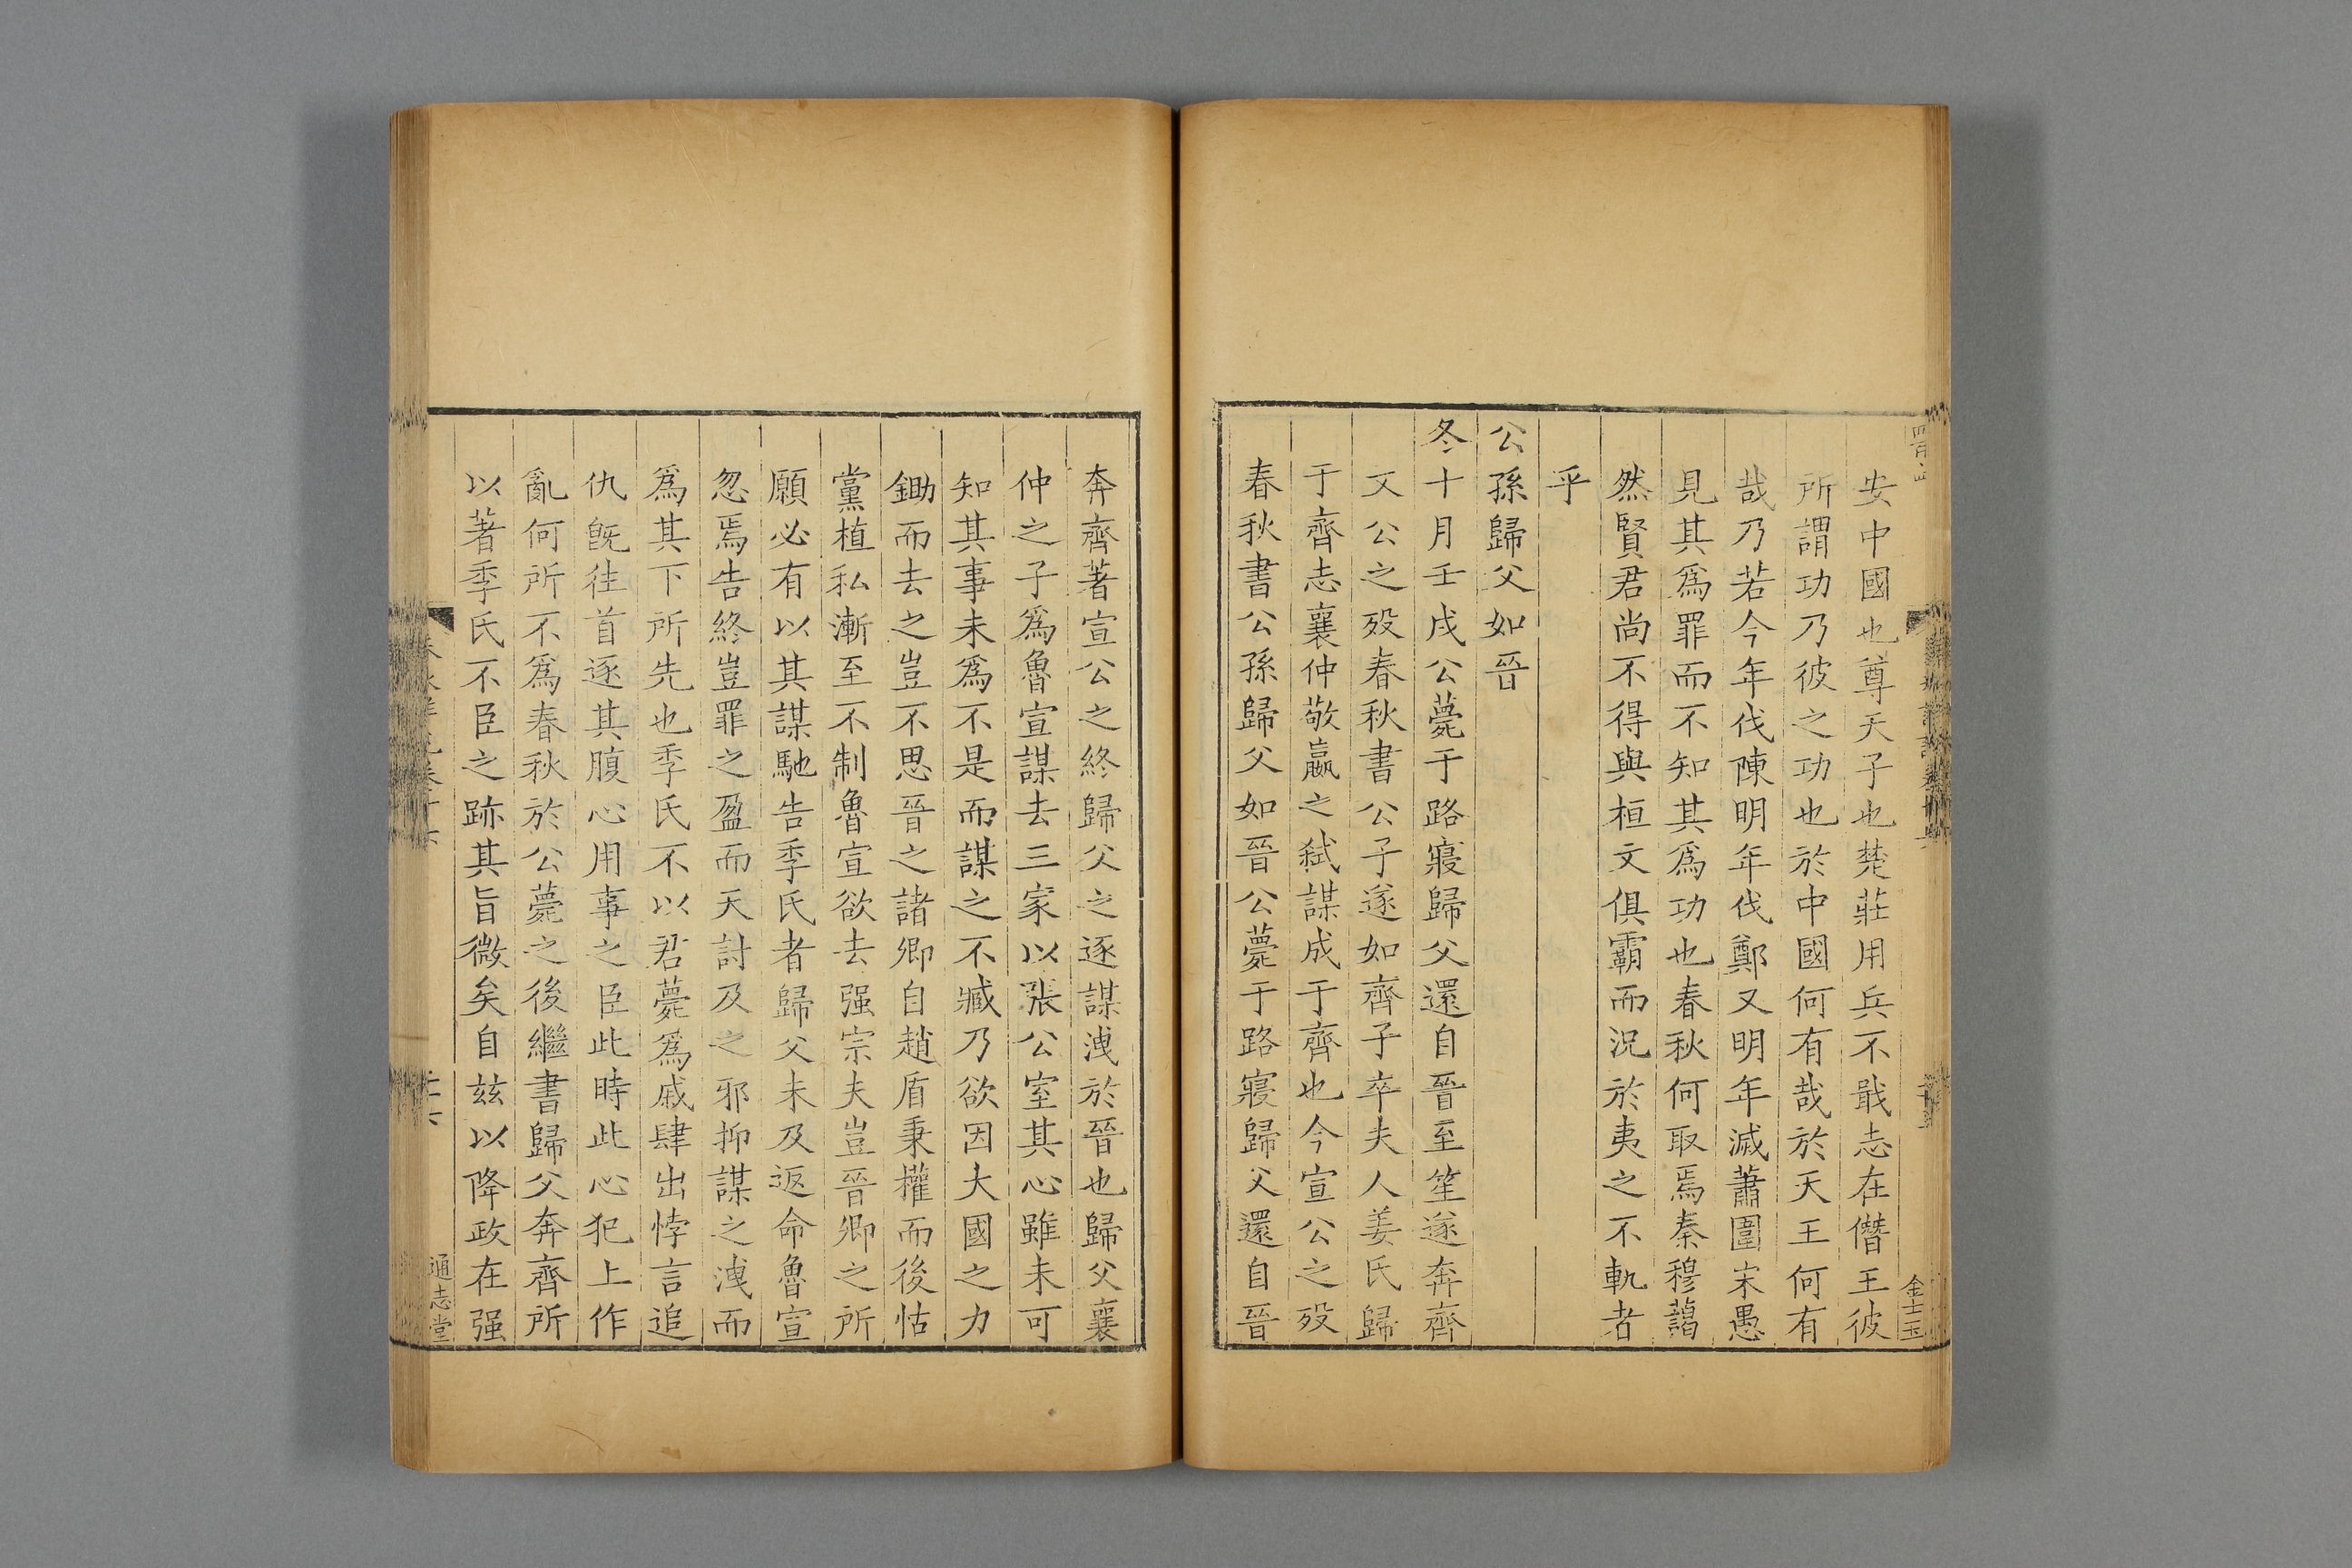 安中國也尊天子也楚莊用兵不戢志在僭王彼
所謂功乃彼之功也於中國何有哉於天王何有
哉乃若今年伐陳明年伐鄭又明年滅蕭圍宋愚
見其爲罪而不知其爲功也春秋何取焉秦穆藹
然賢君尚不得與桓文俱霸而況於夷之不軌者
乎
公孫歸父如晉
冬十月壬戌公薨于路寢歸父還自晉至笙遂奔齊
文公之歿春秋書公子遂如齊子卒夫人姜氏歸
于齊志襄仲敬嬴之弑謀成于齊也今宣公之歿
春秋書公孫歸父如晉公薨于路寢歸父還自晉
金士玉
奔齊著宣公之終歸父之逐謀洩於晉也歸父襄
仲之子爲魯宣謀去三家以張公室其心雖未可
知其事未爲不是而謀之不臧乃欲因大國之力
鋤而去之豈不思晉之諸卿自趙盾秉權而後怙
黨植私漸至不制魯宣欲去强宗夫豈晉卿之所
願必有以其謀馳告季氏者歸父未及返命魯宣
忽焉告終豈罪之盈而天討及之邪抑謀之洩而
爲其下所先也季氏不以君薨爲戚肆出悖言追
仇旣往首逐其腹心用事之臣此時此心犯上作
亂何所不爲春秋於公薨之後繼書歸父奔齊所
以著季氏不臣之跡其旨微矣自玆以降政在强
通志堂